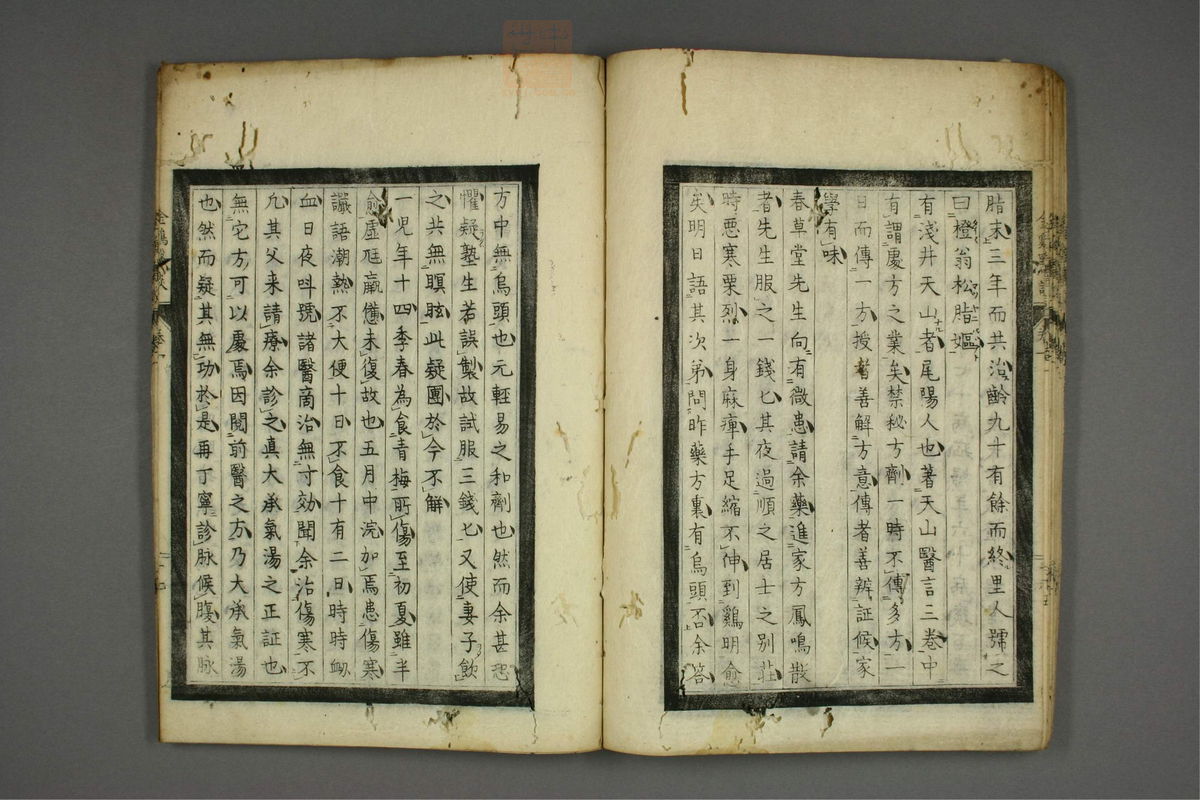 脂末三年而共治齡九十有餘而終里人號之
曰橙翁松脂嫗
有淺井天山者尾陽人也著天山醫言三卷中
有謂處方之業矣禁秘方劑一時不傳多方一
日而傳一方授者善解方意傳者善辨証候家
學有味
春草堂先生向有微患請余藥進家方鳳鳴散
者先生服之一錢匕其夜過順之居士之別莊
時惡寒栗烈一身麻痺手足縮不伸到鷄明愈
矣明日語其次弟問昨藥方裏有烏頭否余答
方中無烏頭也元輕易之和劑也然而余甚恐
懼疑塾生若誤製故試服三錢匕又使妻子飲
之共無瞑眩此疑團於今不解
一児年十四季春為食青梅所傷至初夏雖半
愈虛尫羸憊未復故也五月中浣加焉患傷寒
讝語潮熱不大便十日不食十有二日時時衂
血日夜呌號諸醫商治無寸効聞余治傷寒不
凢其父来請療余診之真大承氣湯之正証也
無它方可以處焉因閱前醫之方乃大承氣湯
也然而疑其無功於是再丁寧診脉候腹其脉